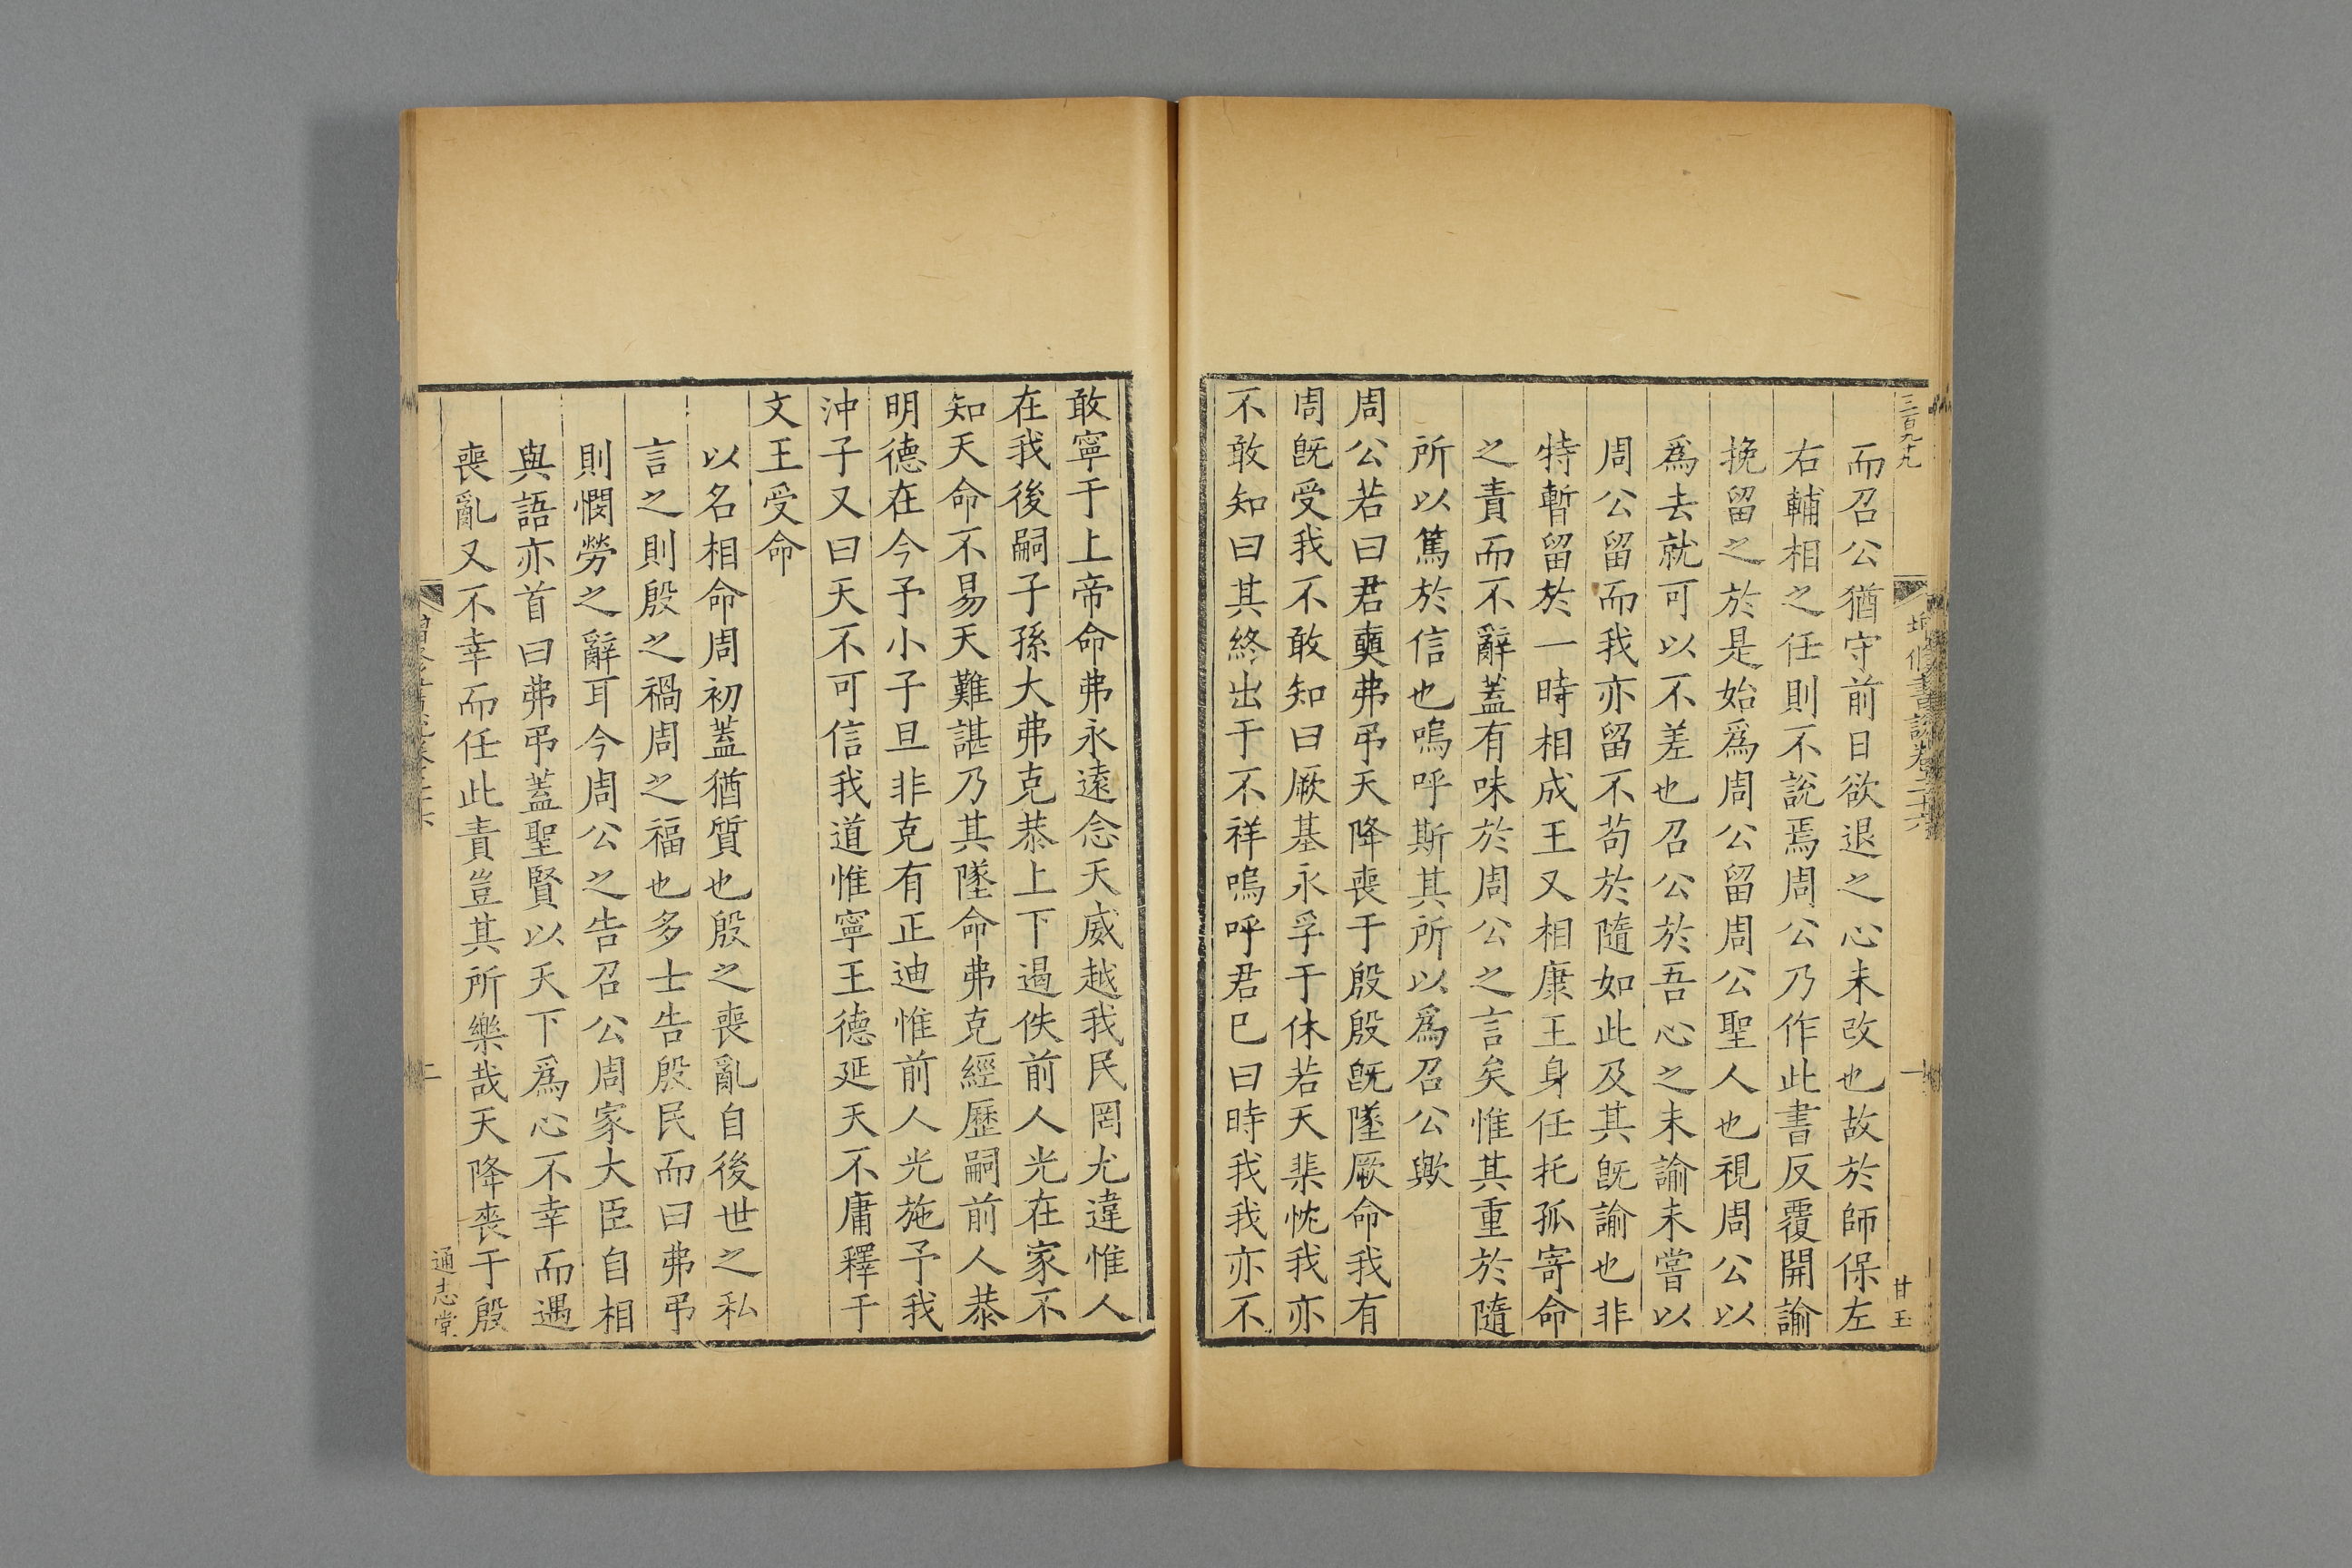 三百九十九
增修書說卷二十六
一
甘玉
而召公猶守前日欲退之心未改也故於師保左
右輔相之任則不說焉周公乃作此書反覆開諭
挽留之於是始爲周公留周公聖人也視周公以
爲去就可以不差也召公於吾心之未諭未嘗以
周公留而我亦留不苟於隨如此及其旣諭也非
特暫留於一時相成王又相康王身任托孤寄命
之責而不辭蓋有味於周公之言矣惟其重於隨
所以篤於信也嗚呼斯其所以爲召公歟
周公若曰君奭弗弔天降喪于殷殷旣墜厥命我有
周旣受我不敢知曰厥基永孚于休若天棐忱我亦
不敢知曰其終出于不祥嗚呼君已曰時我我亦不
敢寧于上帝命弗永遠念天威越我民罔尤違惟人
在我後嗣子孫大弗克恭上下遏佚前人光在家不
知天命不易天難諶乃其墜命弗克經歷嗣前人恭
明德在今予小子旦非克有正迪惟前人光施予我
沖子又曰天不可信我道惟寧王德延天不庸釋于
文王受命
以名相命周初蓋猶質也殷之喪亂自後世之私
言之則殷之禍周之福也多士告殷民而曰弗弔
則憫勞之辭耳今周公之告召公周家大臣自相
與語亦首曰弗弔蓋聖賢以天下爲心不幸而遇
喪亂又不幸而任此責豈其所樂哉天降喪于殷
二
通志堂